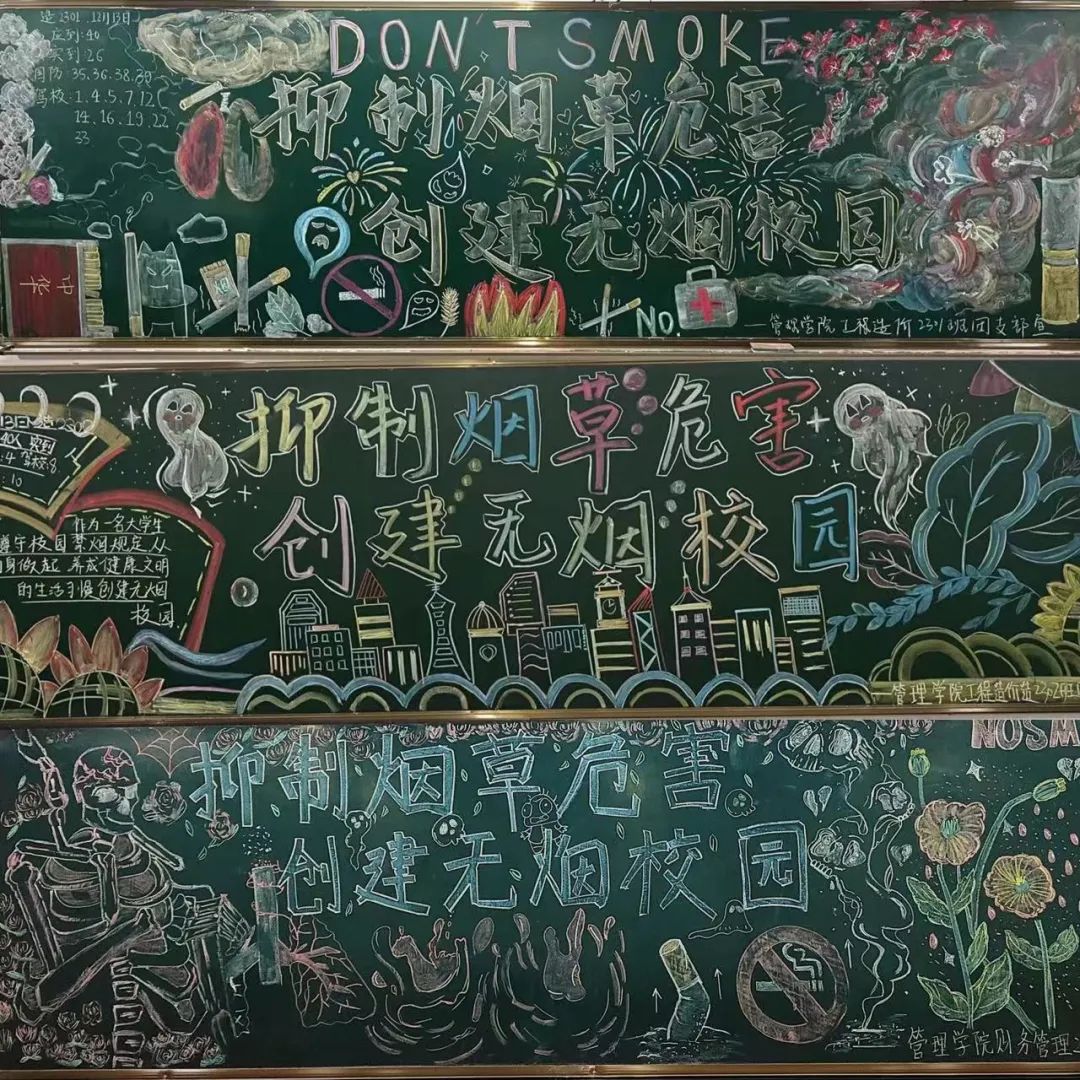 造2301.12月13日
应到:40
实到:26
国防:35.36.38.39
驾校:1.4.5.7.12
14.16.19.22
23
DON'T SMOKE
抑制烟草危害
创建无烟校园
中华
NO.
管理学院工程造价2301班团支部宣
抑制烟草危害
创建无烟校园
作为一名大学生
遵守校园禁烟规定从
自身做起 养成健康文明
的生活习惯创建无烟
校园
NOSM
抑制烟草危害
创建无烟校园
管理学院财务管理